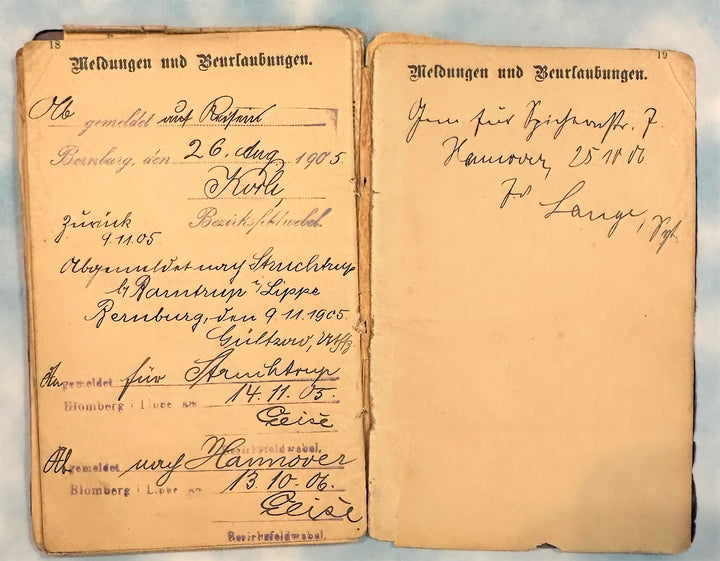 18
Meldungen und Beurlaubungen.
Abgemeldet auf Reisen
Bernburg, den 26. Aug. 1905.
Bezirksfeldwebel.
Zurück
9.11.05.
Abgemeldet nach Struchtrup
b/ Barntrup i/Lippe
Bernburg, den 9.11.1905.
Gültzow, Utffz
Angemeldet für Struchtrup
Blomberg i Lippe am 14.11.05.
Geise
Bezirksfeldwebel.
Abgemeldet nach Hannover
Blomberg i Lippe am 13.10.06.
Geise
Bezirksfeldwebel.
19
Meldungen und Beurlaubungen.
Gem für Spichernstr. 7.
Hannover, 25 10 06
Lange, Sgt.